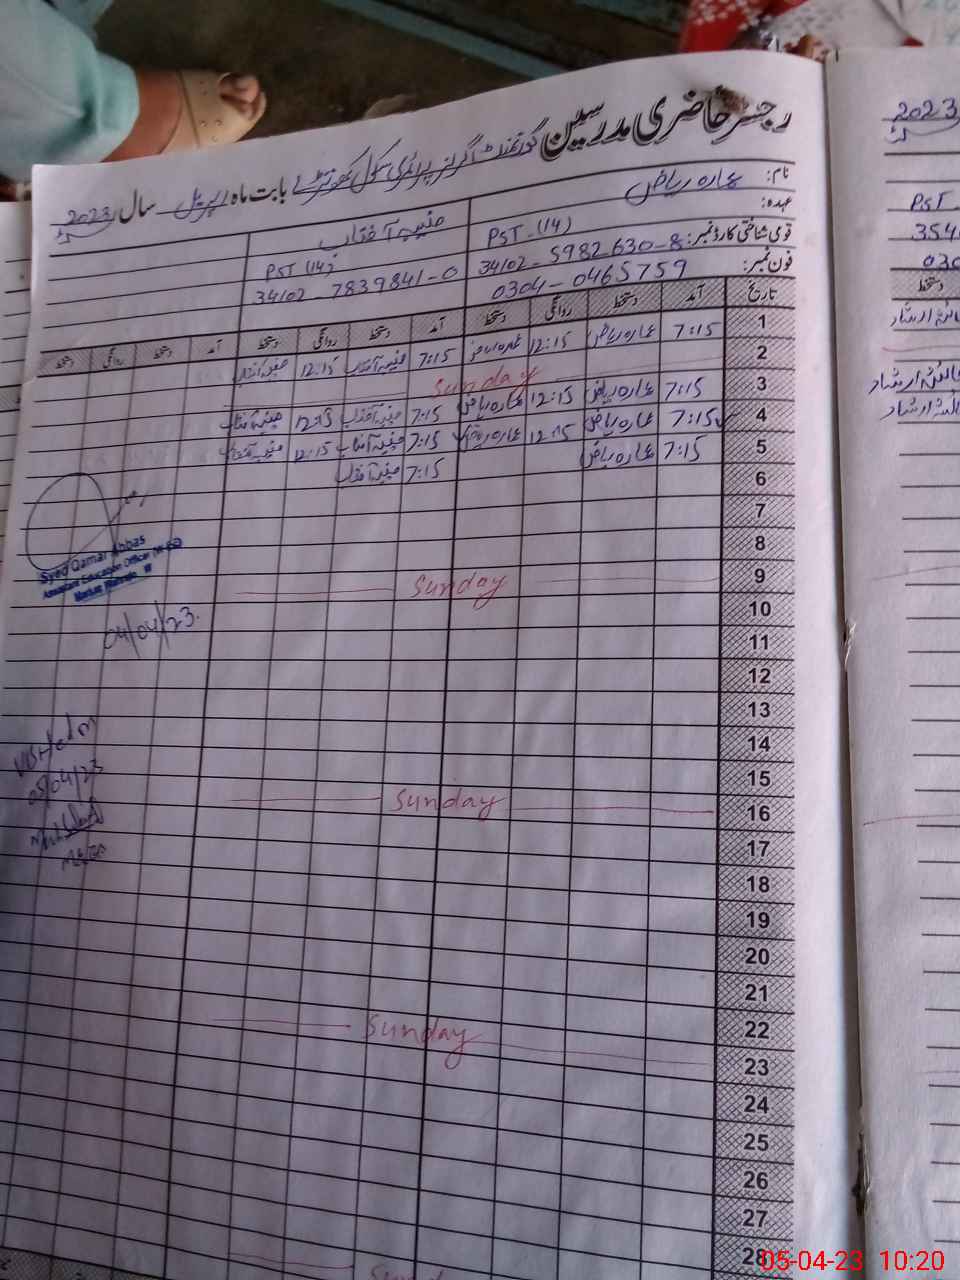 رجسٹر حاضری مدرسین گورنمنٹ گرلز پرائمری سکول بابت ماہ اپریل سال 2023ء
نام: عمارہ ریاض
عہدہ: PST-(14) PST (14)
قومی شناختی کارڈ نمبر: 34102-5982630-8 34102-7839841-0
فون نمبر: 0304-0465759
تاریخ آمد دستخط روانگی دستخط آمد دستخط روانگی دستخط آمد دستخط روانگی دستخط
1 7:15 عمارہ ریاض 12:15 عمارہ ریاض 7:15 12:15
2 Sunday
3 7:15 عمارہ ریاض 12:15 عمارہ ریاض 7:15
4 7:15 عمارہ ریاض 12:15 عمارہ ریاض 7:15 12:15
5 7:15 عمارہ ریاض 7:15
6
7
8
9 Sunday
10
11
12
13
14
15
16 Sunday
17
18
19
20
21
22
23 Sunday
24
25
26
27
28
Syed Qamar Abbas
Assistant Education Officer
04/04/23
Visited
05/04/23
2023ء
PST
354
030
دستخط
05-04-23 10:20